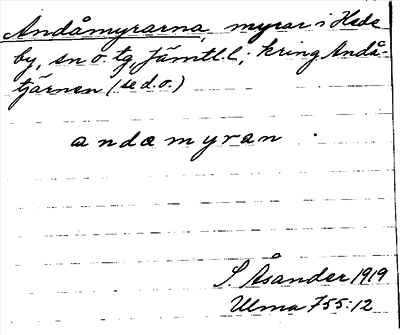 Andåmyrarna, myrar i Hede
by, sn o. tg, Jämtl.l.; kring Andå-
tjärnen (se d.o.)
andomyran .
S. Åsander 1919
Ulma 755:12